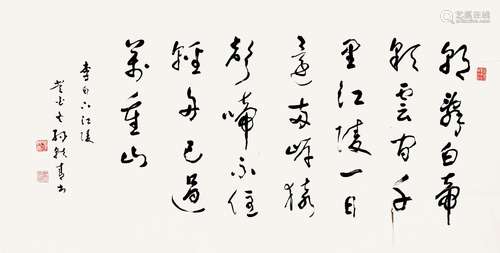 朝辭白帝
彩雲間千
里江陵一日
還兩岸猿
聲啼不住
輕舟已過
萬重山
李白下江陵